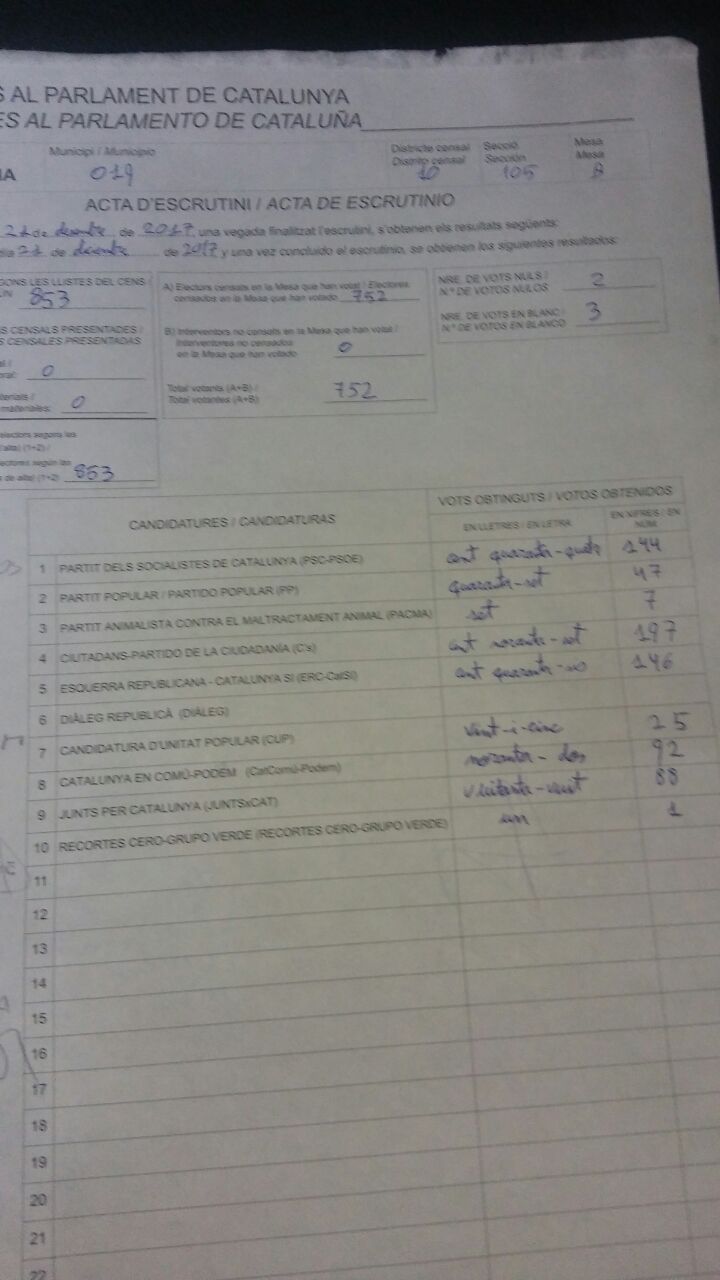 S AL PARLAMENT DE CATALUNYA
ES AL PARLAMENTO DE CATALUÑA
Municipi / Municipio
Districte censal Secció Mesa
Distrito censal Sección Mesa
IA 019 10 105 B
ACTA D'ESCRUTINI / ACTA DE ESCRUTINIO
21 de desembre de 2017, una vegada finalitzat l'escrutini, s'obtenen els resultats següents:
dia 21 de de 2017 y una vez concluido el escrutinio, se obtienen los siguientes resultados:
GONS LES LLISTES DEL CENS /
853
A) Electors censats en la Mesa que han votat / Electores
censados en la Mesa que han votado 752
NRE. DE VOTS NULS /
N.º DE VOTOS NULOS 2
S CENSALS PRESENTADES /
S CENSALES PRESENTADAS
B) Interventors no censats en la Mesa que han votat /
Interventores no censados
en la Mesa que han votado 0
NRE. DE VOTS EN BLANC /
N.º DE VOTOS EN BLANCO 3
al /
oral: 0
aterials /
materiales: 0
Total votants (A+B) /
Total votantes (A+B) 752
electors segons les
d'alta) (1+2) /
ectores según las
s de alta) (1+2) 853
CANDIDATURES / CANDIDATURAS
VOTS OBTINGUTS / VOTOS OBTENIDOS
EN LLETRES / EN LETRA
EN XIFRES / EN
NÚM.
1 PARTIT DELS SOCIALISTES DE CATALUNYA (PSC-PSOE) cent quaranta-quatre 144
2 PARTIT POPULAR / PARTIDO POPULAR (PP) quaranta-set 47
3 PARTIT ANIMALISTA CONTRA EL MALTRACTAMENT ANIMAL (PACMA) set 7
4 CIUTADANS-PARTIDO DE LA CIUDADANÍA (C's) cent noranta-set 197
5 ESQUERRA REPUBLICANA - CATALUNYA SÍ (ERC-CatSí) cent quaranta-sis 146
6 DIÀLEG REPUBLICÀ (DIÀLEG)
7 CANDIDATURA D'UNITAT POPULAR (CUP) vint-i-cinc 25
8 CATALUNYA EN COMÚ-PODEM (CatComú-Podem) noranta-dos 92
9 JUNTS PER CATALUNYA (JUNTSxCAT) vuitanta-vuit 88
10 RECORTES CERO-GRUPO VERDE (RECORTES CERO-GRUPO VERDE) un 1
11
12
13
14
15
16
17
18
19
20
21
22